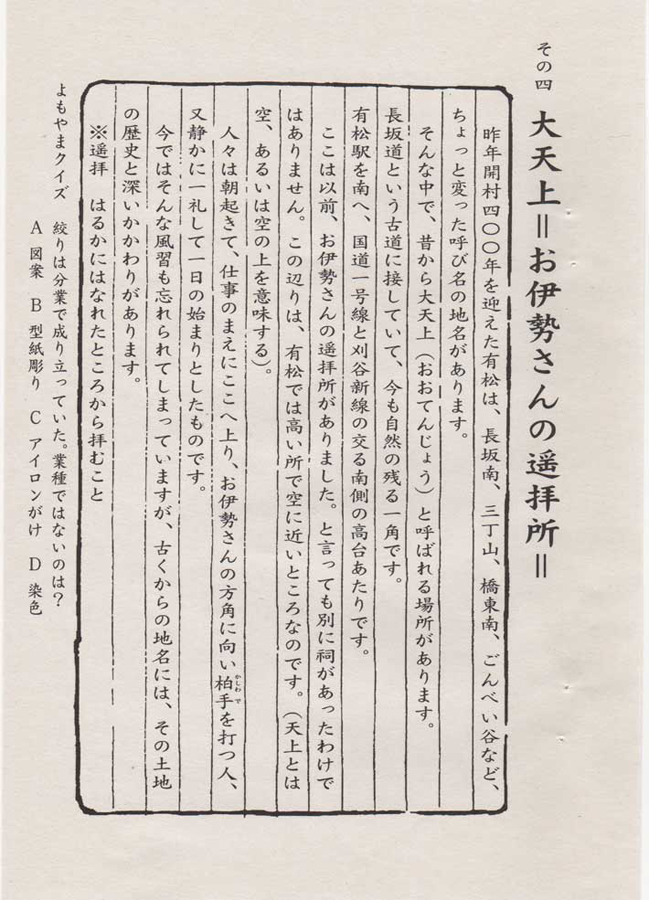 その四　大天上＝お伊勢さんの遥拝所＝
昨年開村四〇〇年を迎えた有松は、長坂南、三丁山、橋東南、ごんべい谷など、
ちょっと変った呼び名の地名があります。
そんな中で、昔から大天上（おおてんじょう）と呼ばれる場所があります。
長坂道という古道に接していて、今も自然の残る一角です。
有松駅を南へ、国道一号線と刈谷新線の交る南側の高台あたりです。
ここは以前、お伊勢さんの遥拝所がありました。と言っても別に祠があったわけで
はありません。この辺りは、有松では高い所で空に近いところなのです。（天上とは
空、あるいは空の上を意味する）。
人々は朝起きて、仕事のまえにここへ上り、お伊勢さんの方角に向い柏手を打つ人、
かしわで
又静かに一礼して一日の始まりとしたものです。
今ではそんな風習も忘れられてしまっていますが、古くからの地名には、その土地
の歴史と深いかかわりがあります。
※遥拝　はるかにはなれたところから拝むこと
よもやまクイズ　絞りは分業で成り立っていた。業種ではないのは？
A 図案　B 型紙彫り　C アイロンがけ　D 染色